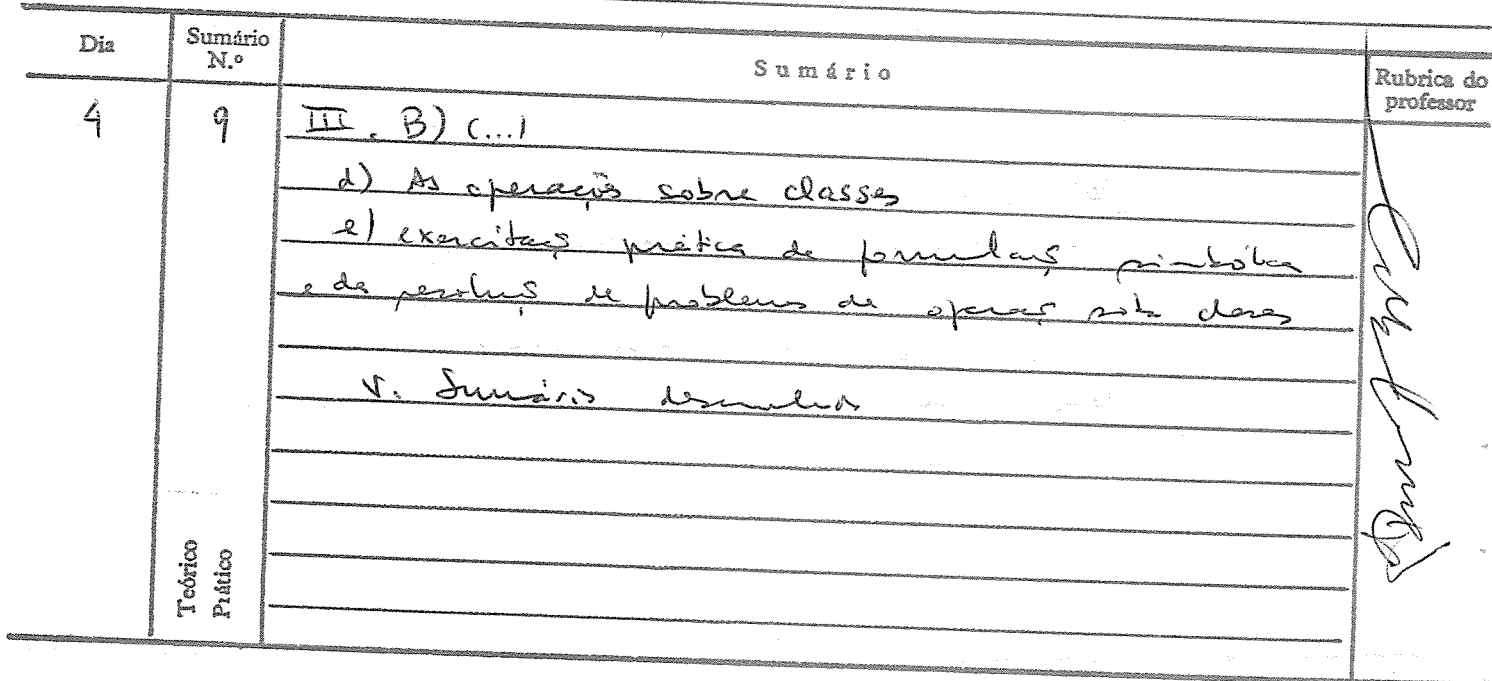 Dia
Sumário
N.º
Sumário
Rubrica do
professor
4
9
III. B) (...)
d) As operações sobre classes
e) exercitação prática de formulação simbólica
e da resolução de problemas de operação sobre classes
V. Sumário desenvolvido
Teórico
Prático